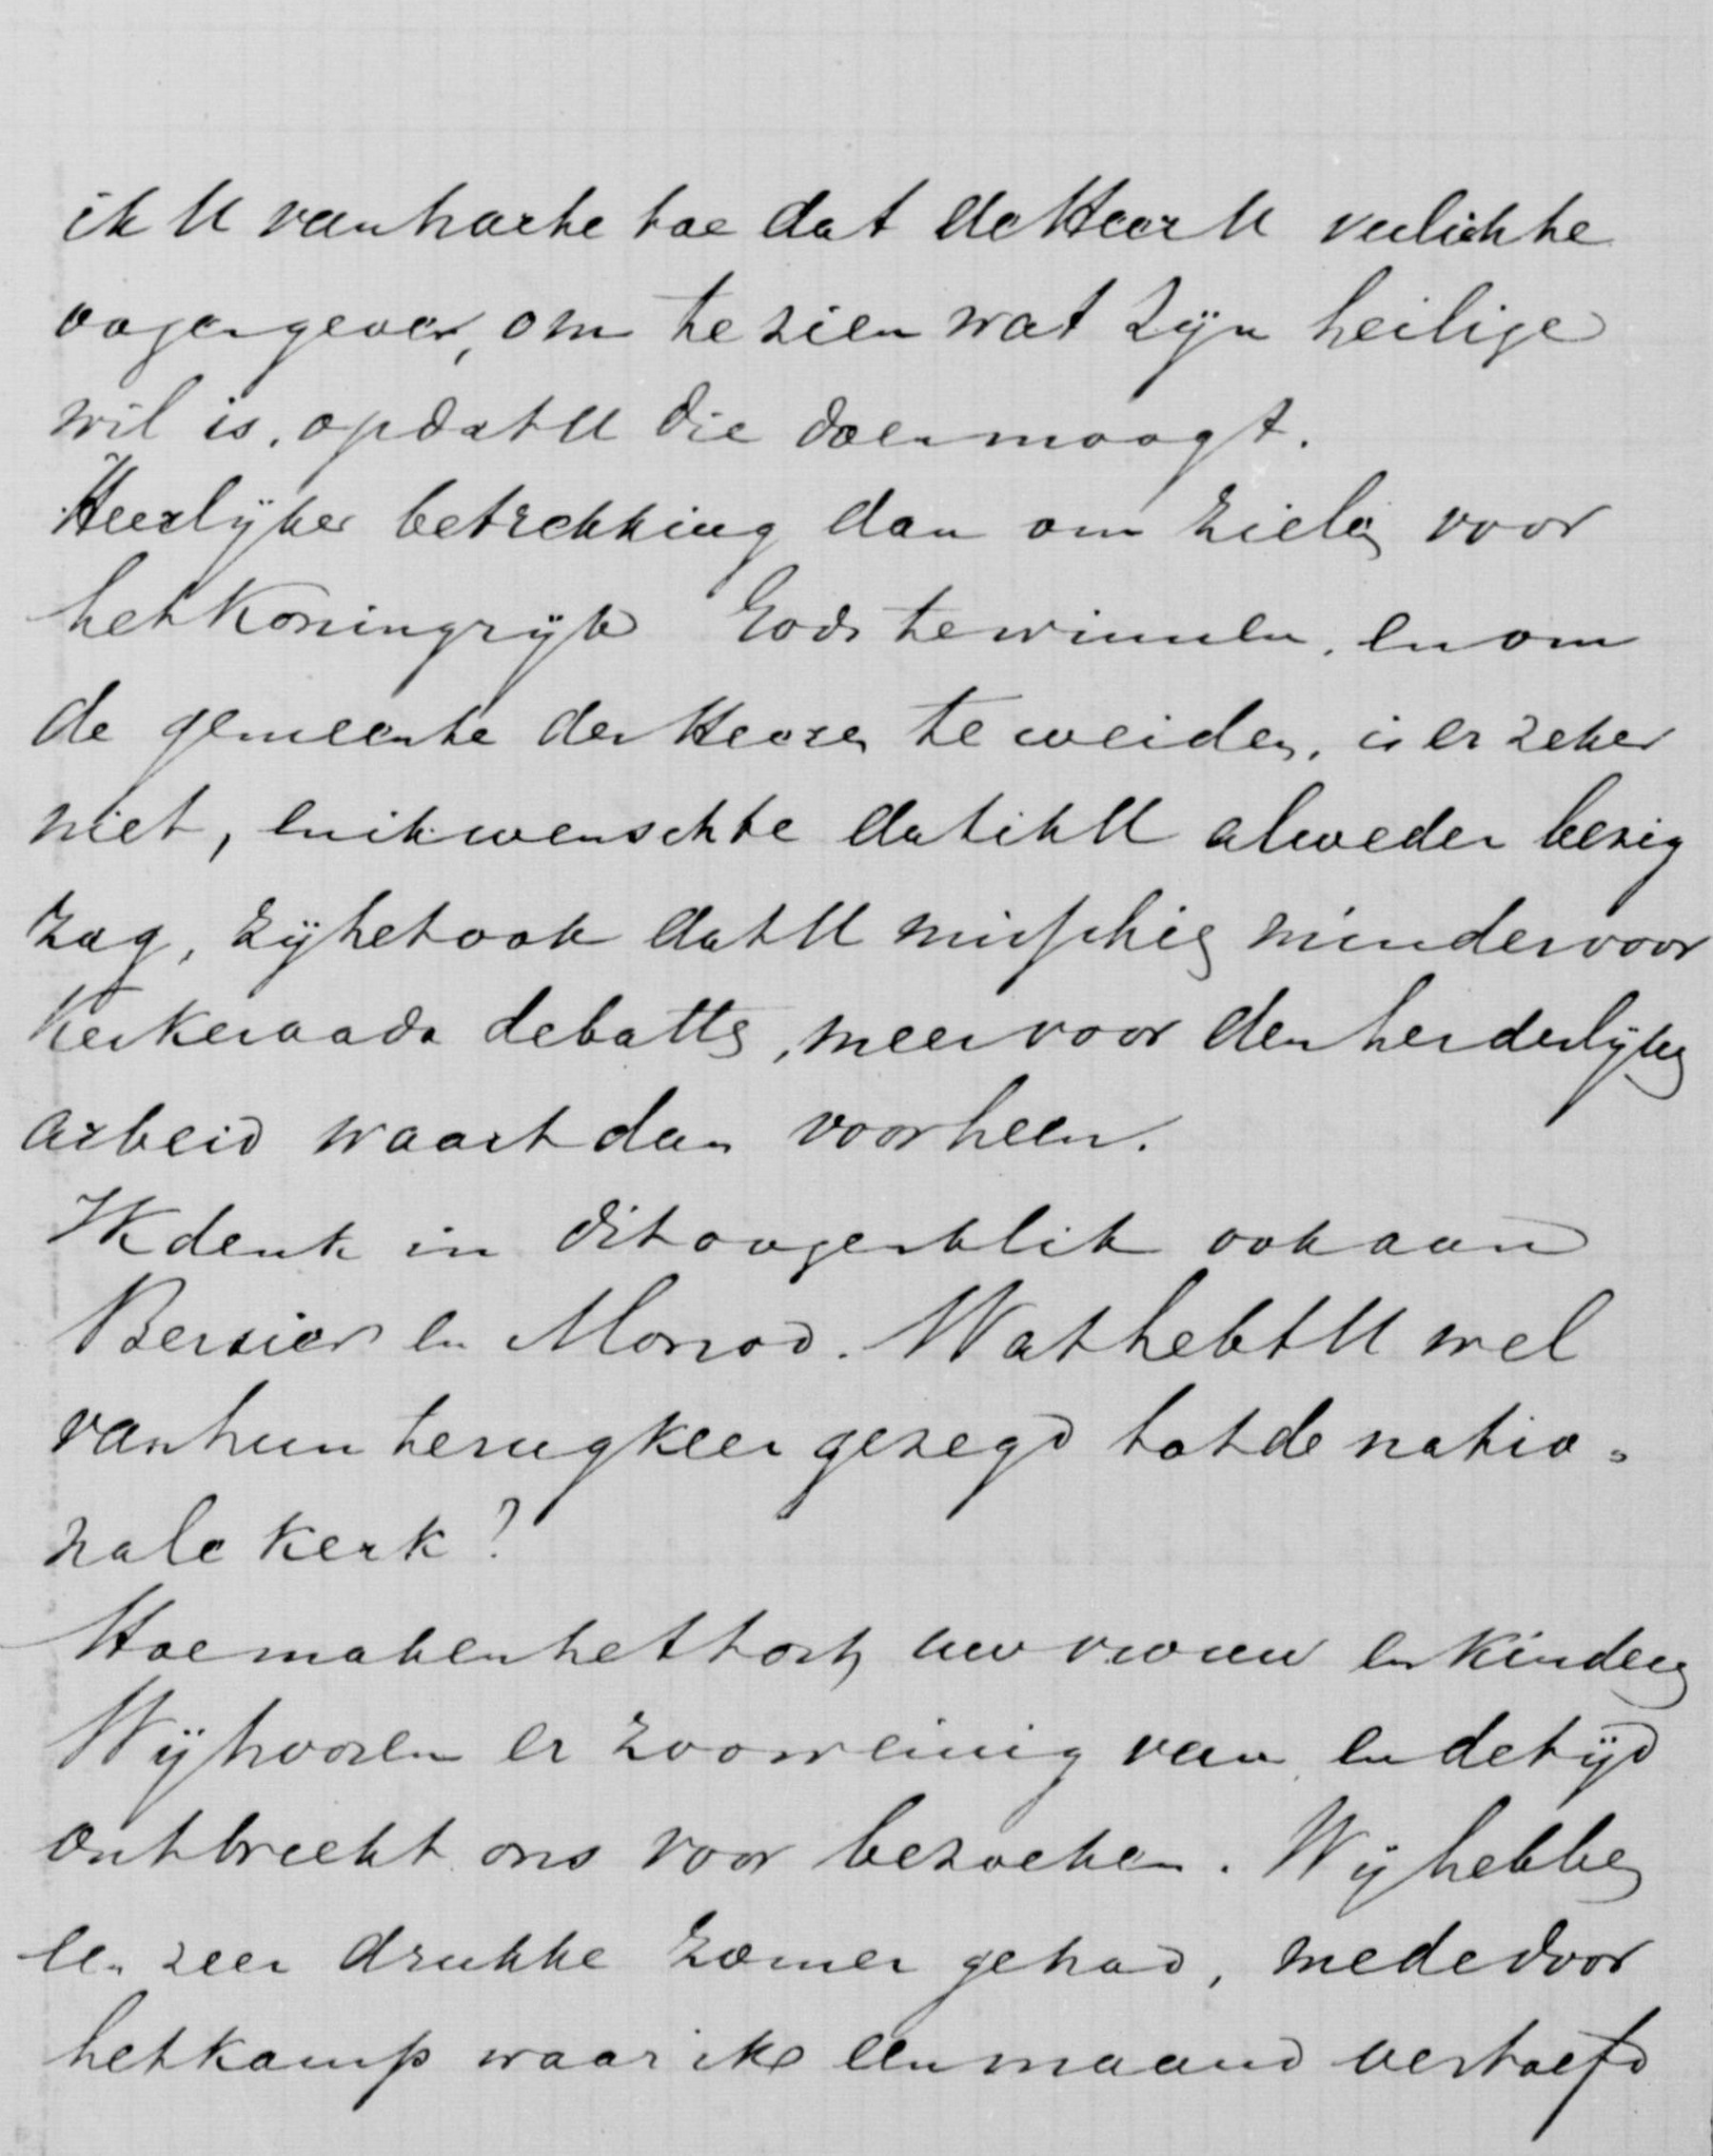 ik U van harte toe dat de Heer U verlichte
oogen geve, om te zien wat Zijn heilige
wil is, opdat U die doen moogt.
Heerlijker betrekking dan om zielen voor
het Koningrijk Gods te winnen, en om
de gemeente des Heeren te weiden, is er zeker
niet, en ik wenschte dat ik U alweder bezig
zag, zij het ook dat U misschien minder voor
Kerkeraads debatten, meer voor den herderlijken
arbeid waart dan voorheen.
Ik denk in dit oogenblik ook aan
Bersier en Monod. Wat hebt U wel
van hun terugkeer gezegd tot de natio=
nale kerk?
Hoe maken het toch uw vrouw en kinderen
Wij hooren er zoo weinig van, en de tijd
ontbreekt ons voor bezoeken. Wij hebben
een zeer drukke zomer gehad, mede door
het kamp waar ik een maand vertoefd